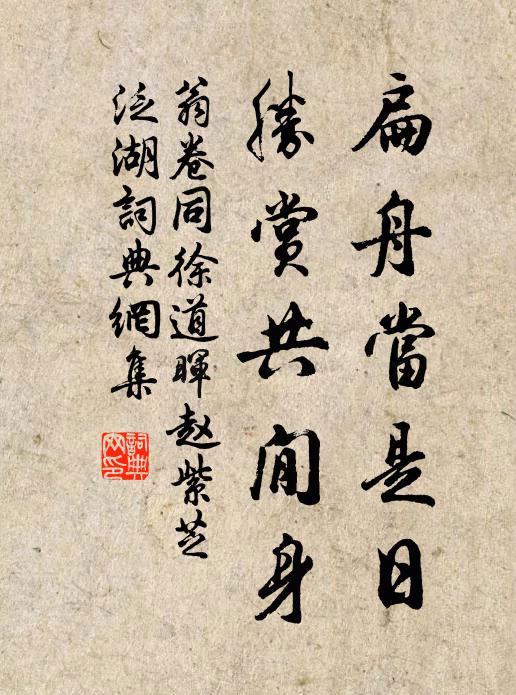 扁舟當是日
勝賞共閒身
翁卷同徐道暉赵紫芝
泛湖詞典網集
詞典网印